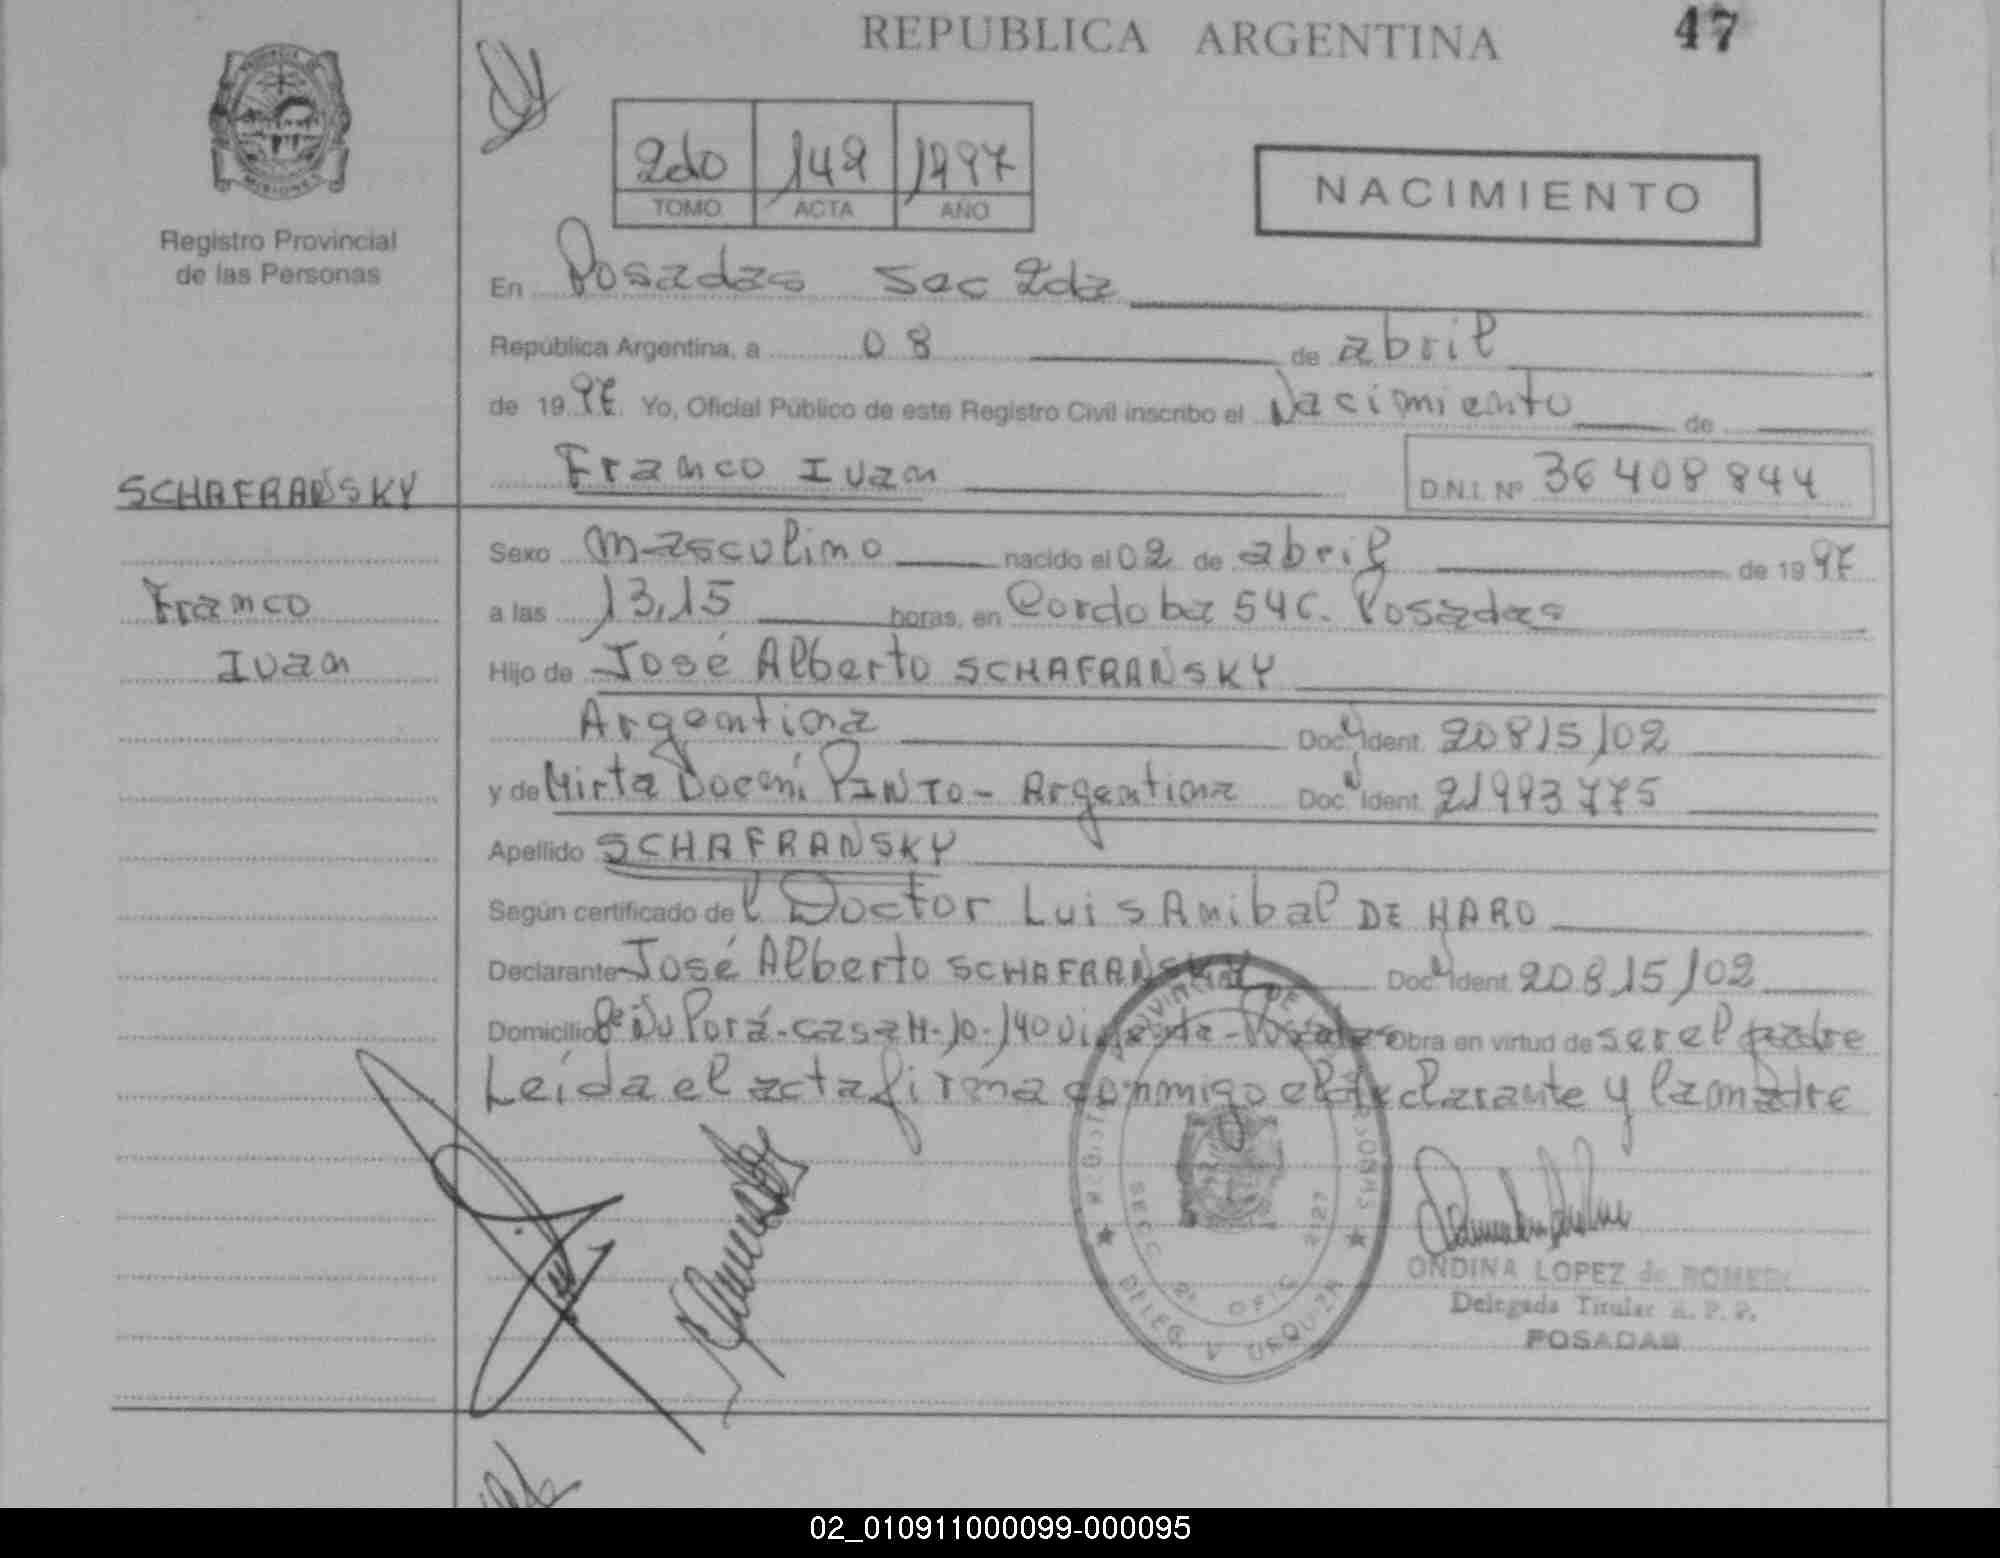 REPUBLICA ARGENTINA
47
Registro Provincial
de las Personas
2do 149 1997
TOMO ACTA AÑO
NACIMIENTO
En Posadas Sec 2da
República Argentina, a 08 de abril
de 1997 Yo, Oficial Público de este Registro Civil inscribo el Nacimiento de
Franco Ivan D.N.I. Nº 36408844
SCHAFRANSKY
Franco
Ivan
Sexo masculino nacido el 02 de abril de 1997
a las 13,15 horas, en Cordoba 546. Posadas
Hijo de José Alberto SCHAFRANSKY
Argentina Doc. Ident. 20815102
y de Mirta PINTO - Argentina Doc. Ident. 21993775
Apellido SCHAFRANSKY
Según certificado de l Doctor Luis Anibal DE HARO
Declarante José Alberto SCHAFRANSKY Doc. Ident. 20815102
Domicilio Ñu Porá - casa - Posadas Obra en virtud de ser el padre
Leída el acta firma conmigo el declarante y la madre
REGISTRO PROVINCIAL DE LAS PERSONAS
SECC 2ª OFIC 2127
DELEG 1 URQUIZA
ONDINA LOPEZ de ROMERO
Delegada Titular R. P. P.
POSADAS
MISIONES
02_010911000099-000095